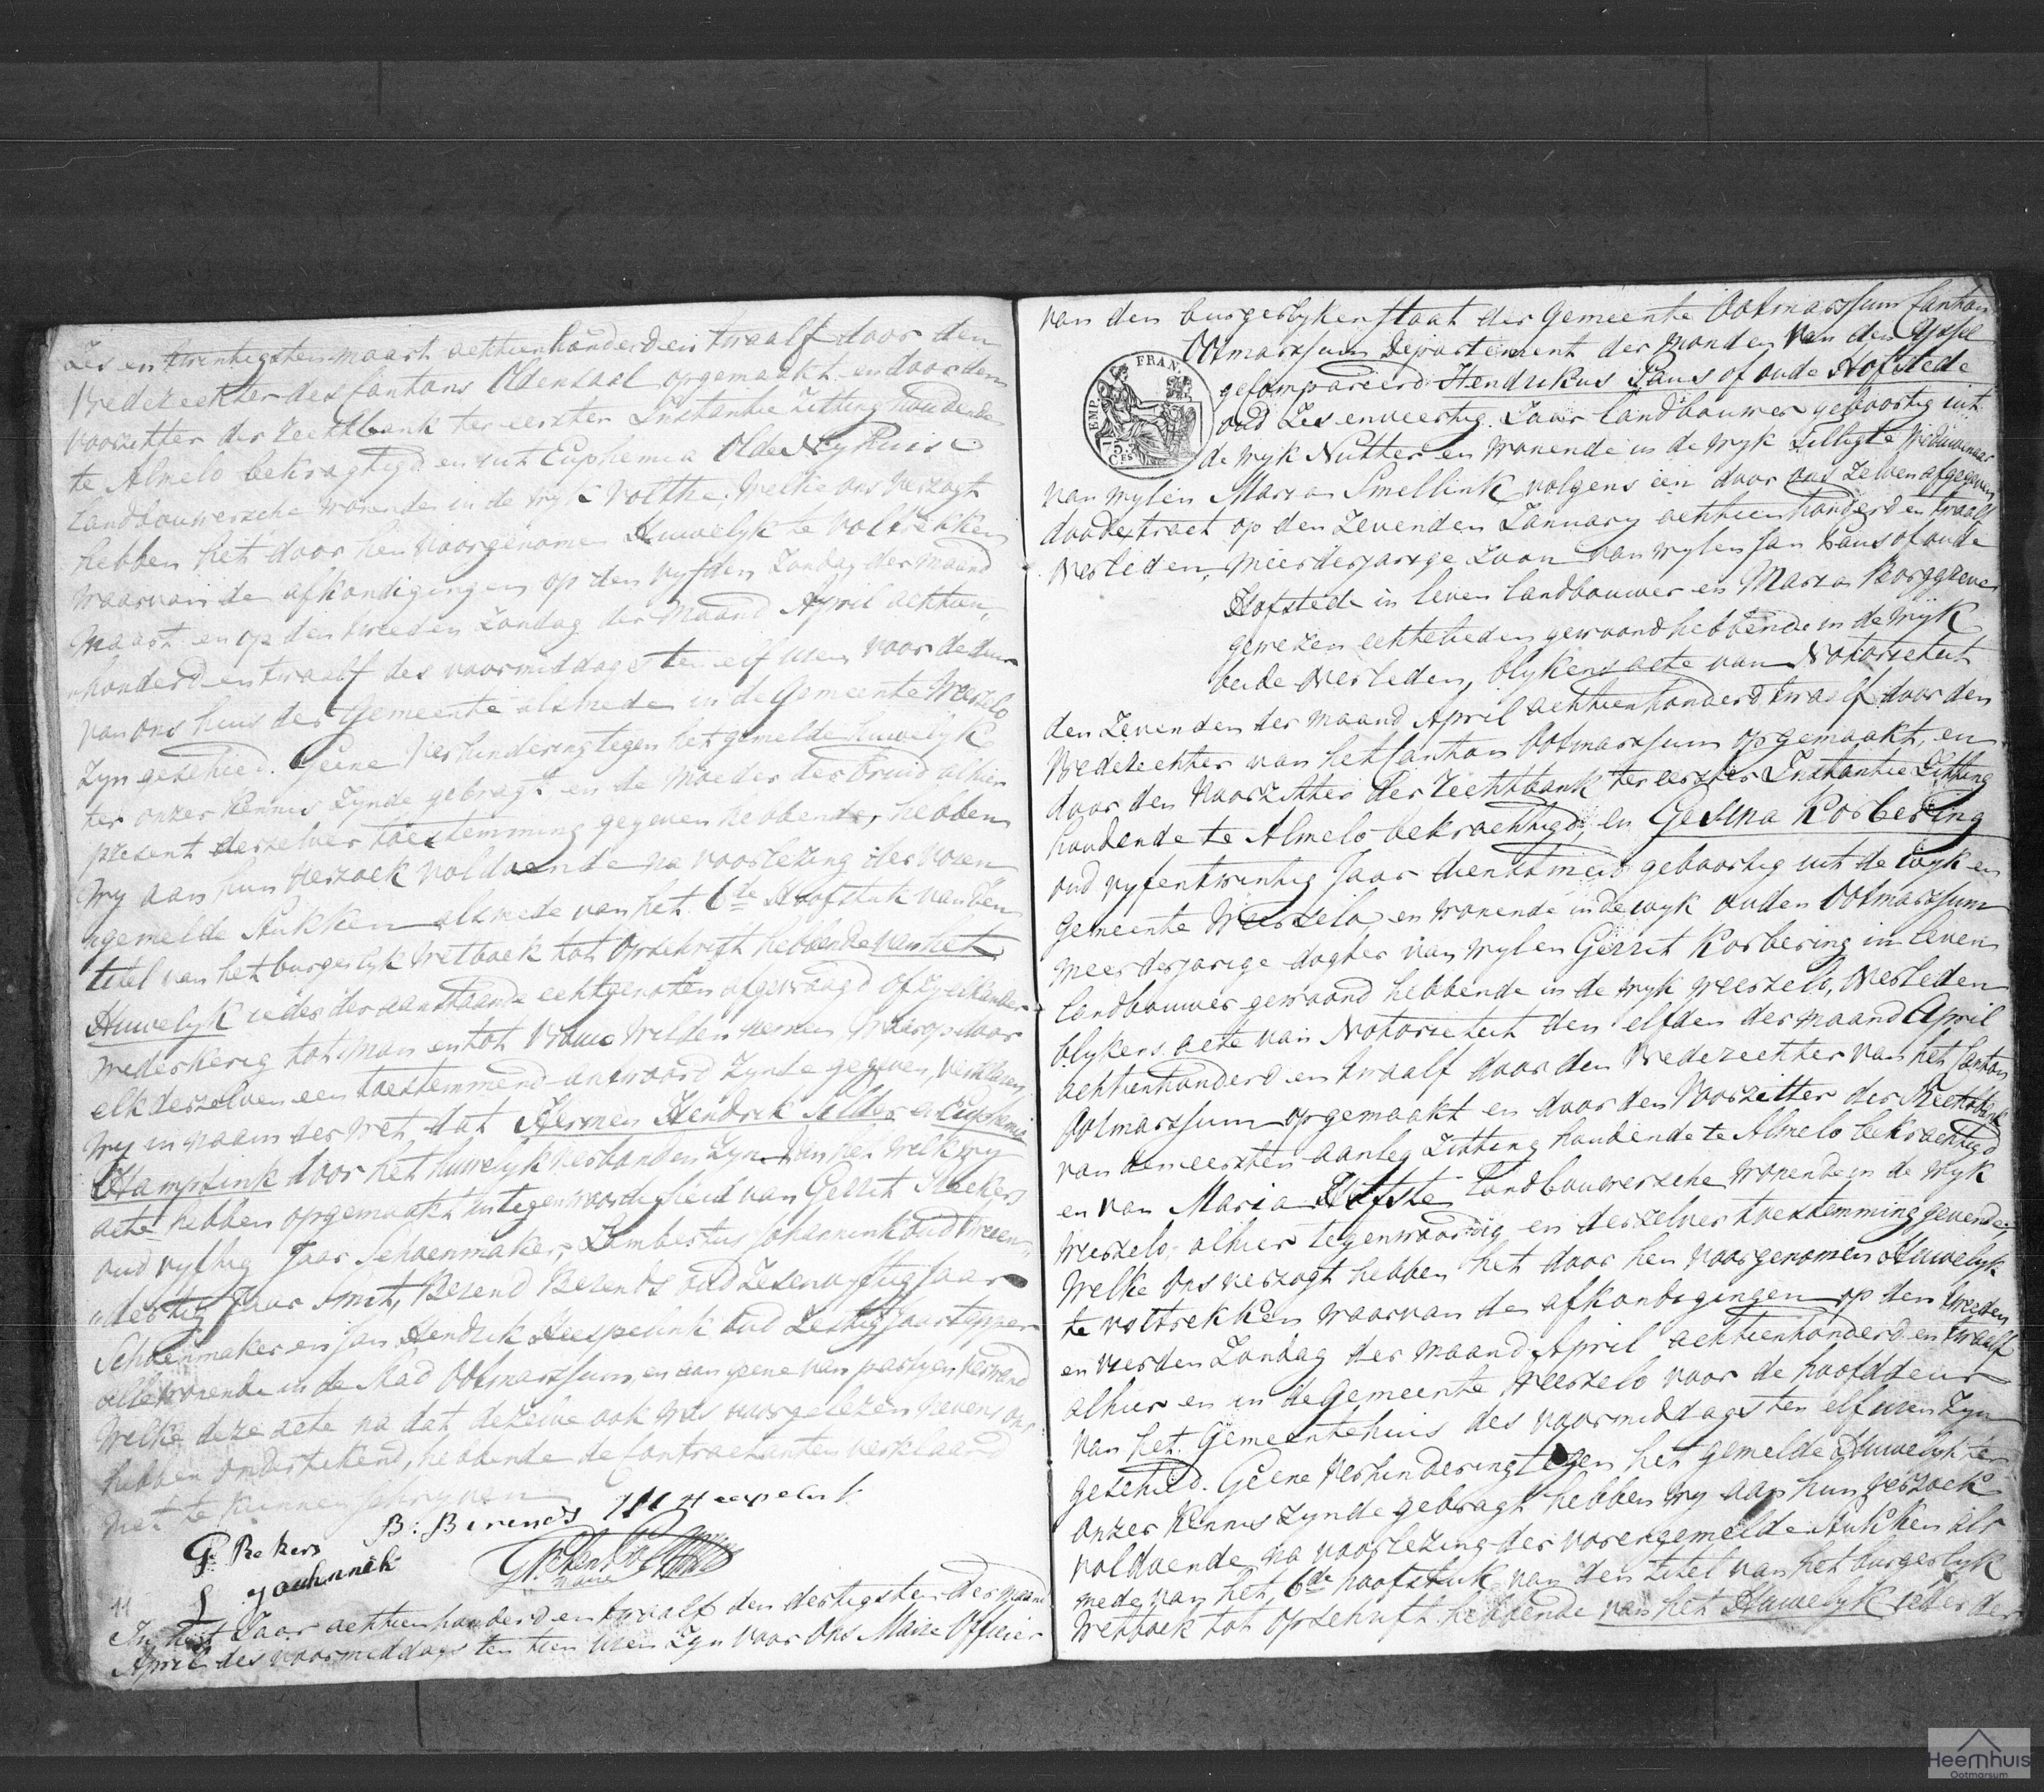 Zes en twintigsten maart achttienhonderd en twaalf door den
Vrederechter des Cantons Oldensaal opgemaakt en door den
voorzitter der Rechtbank ter eerster Instantie Zitting houdende
te Almelo bekragtigd en uit Euphemia Olde Nyhuis
Landbouwersche wonende in de wyk Volthe, welke ons verzogt
hebben het door hen voorgenomen Huwelyk te voltrekken
waarvan de afkondigingen op den vyfden Zondag der maand
Maart en op den tweeden Zondag der Maand April achttien
honderd en twaalf des voormiddags ten elf uren voor de deur
van ons huis der Gemeente alsmede in de Gemeente Weerselo
Zyn geschied. Geene Verhindering tegen het gemelde huwelyk
ter onzer kennis Zynde gebragt en de Moeder der Bruid alhier
present derzelver toestemming gegeven hebbende, hebben
Wy aan hun Verzoek voldoende na voorlezing der voren
gemelde Stukken alsmede van het 6de Hoofstuk van den
titel van het burgerlyk Wetboek tot Opschrift hebbende van het
Huwelyk ieder der aanstaande echtgenoten afgevraagd of zy elkander
wederkerig tot man en tot Vrouw wilden nemen waarop door
elk derzelven een toestemmend antwoord Zynde gegeven, verklaren
wy in naam der wet dat Hermen Hendrik Silder en Euphemia
Hampsink door het huwelyk verbonden Zyn van het welk wy
acte hebben opgemaakt in tegenwoordigheid van Gerrit Reekers
oud vyftig Jaar Schoenmaker, Lambertus Johannink oud tweeen
dertig Jaar Smit, Berend Berends oud Zesenvyftig Jaar
Schoenmaker en Jan Hendrik Heespelink oud Zestig Jaar
alle wonende in de Stad Ootmarssum, en aan geene van partyen verwand
Welke deze acte na dat dezelve ook was voorgelezen nevens ons
hebben ondertekend, hebbende de Contractanten verklaard
niet te kunnen schryven
G. Rekers B: Berends JH Heespelink
L Johannink
maire
11
In het Jaar achttienhonderd en twaalf den dertigsten der maand
April des voormiddags ten tien uren Zyn voor Ons Maire Officier
van den burgerlyken staat der Gemeente Ootmarssum Canton
Ootmarssum Departement der monden van den Yssel
EMP. FRAN.
gecompareerd Hendrikus Paus of oude Hofstede
oud Zes en veertig Jaar landbouwer geboortig uit
de wyk Nutter en wonende in de wyk Tilligte Weduwenaar
75 CES
van wylen Maria Smellink volgens een door ons zelven afgegeven
doodextract op den Zevenden January achttienhonderd en twaalf
Overleden, meerderjarige Zoon van wylen Jan Paus of oude
Hofstede in leven landbouwer en Maria Borggreve
gewezen echtelieden gewoond hebbende in de wyk
beide overleden, blykens acte van Notorieteit
den Zevenden der maand April achttienhonderd twaalf door den
Vrederechter van het Canton Ootmarssum opgemaakt, en
door den Voorzitter der Rechtbank ter eerster Instantie Zitting
houdende te Almelo bekrachtigd, en Gesina Korbering
oud vyfentwintig Jaar dienstmeid geboortig uit de wyk en
Gemeente Weerselo en wonende in de wyk ouden Ootmarssum
meerderjarige dogter van wylen Gerrit Korbering in leven
landbouwer gewoond hebbende in de wyk Weerselo, Overleden
blykens acte van Notorieteit den elfden der maand April
achttienhonderd en twaalf door den Vrederechter van het Canton
Ootmarssum opgemaakt en door den Voorzitter der Rechtbank
van den eersten aanleg Zitting houdende te Almelo bekrachtigd
en van Maria Hofste Landbouwersche wonende in de wyk
Weerselo, alhier tegenwoordig en derzelver toestemming gevende,
Welke Ons verzogt hebben het door hen Voorgenomen Huwelyk
te voltrekken waarvan de afkondigingen op den tweeden
en vierden Zondag der maand April achttienhonderd en twaalf
alhier en in de Gemeente Weerselo voor de hoofddeur
van het Gemeentehuis des voormiddags ten elf uren Zyn
geschied. Geene Verhindering tegen het gemelde Huwelyk ter
onzer Kennis Zynde gebragt hebben wy aan hun verzoek
voldoende na voorlezing der vorengemelde Stukken als
mede van het 6de hoofstuk van den titel van het burgerlyk
Wetboek tot Opschrift hebbende van het Huwelyk ieder der
Heemhuis
Ootmarsum